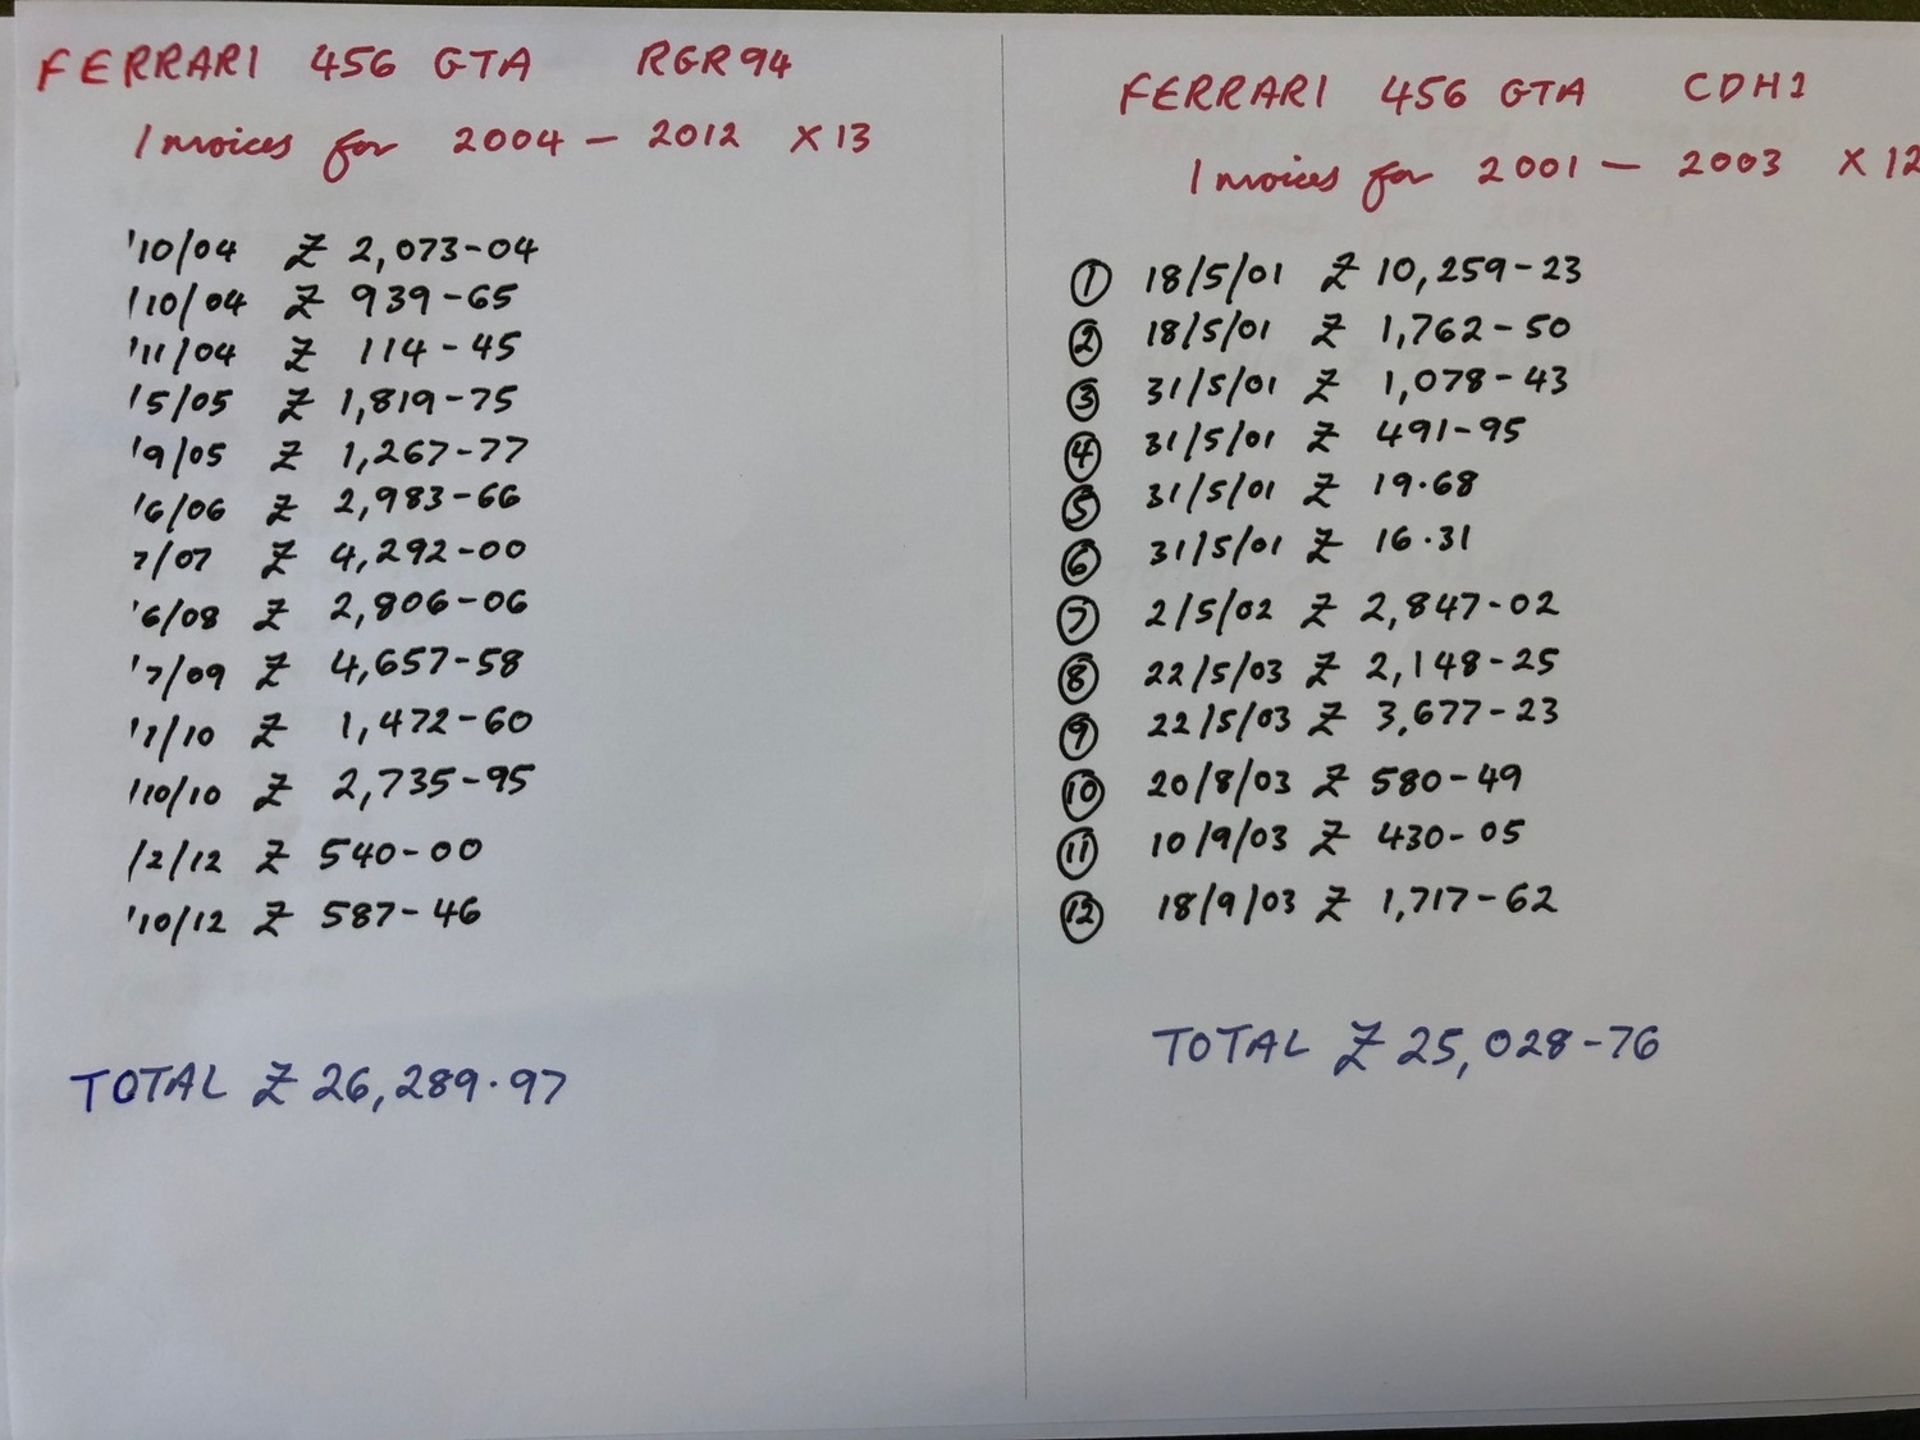 FERRARI 456 GTA RGR94
Invoices for 2004 – 2012 X13
'10/04 £ 2,073-04
'10/04 £ 939-65
'11/04 £ 114-45
'5/05 £ 1,819-75
'9/05 £ 1,267-77
'6/06 £ 2,983-66
7/07 £ 4,292-00
'6/08 £ 2,806-06
'7/09 £ 4,657-58
'1/10 £ 1,472-60
'10/10 £ 2,735-95
/2/12 £ 540-00
'10/12 £ 587-46
TOTAL £ 26,289.97
FERRARI 456 GTA CDH1
Invoices for 2001 – 2003 X12
① 18/5/01 £ 10,259-23
② 18/5/01 £ 1,762-50
③ 31/5/01 £ 1,078-43
④ 31/5/01 £ 491-95
⑤ 31/5/01 £ 19.68
⑥ 31/5/01 £ 16.31
⑦ 2/5/02 £ 2,847-02
⑧ 22/5/03 £ 2,148-25
⑨ 22/5/03 £ 3,677-23
⑩ 20/8/03 £ 580-49
⑪ 10/9/03 £ 430-05
⑫ 18/9/03 £ 1,717-62
TOTAL £ 25,028-76